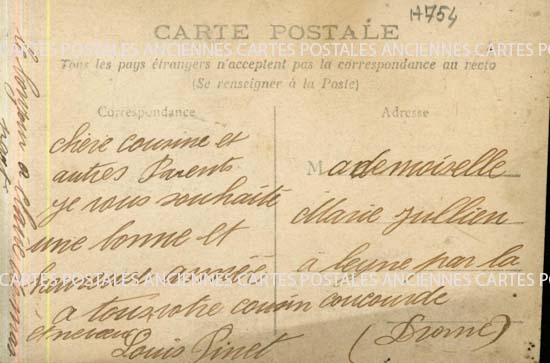 H754
CARTE POSTALE
ANCIENNES CARTES POSTALES ANCIENNES CARTES POSTALES ANCIENNES CARTES POSTALES
Tous les pays étrangers n'acceptent pas la correspondance au recto
(Se renseigner à la Poste)
Correspondance
chère cousine et
autres Parents
je vous souhaite
une bonne et
heureuse année
a tous votre cousin
et neveu
Louis Pinet
Adresse
Mademoiselle
Marie Jullien
à par la
coucourde
(Drome)